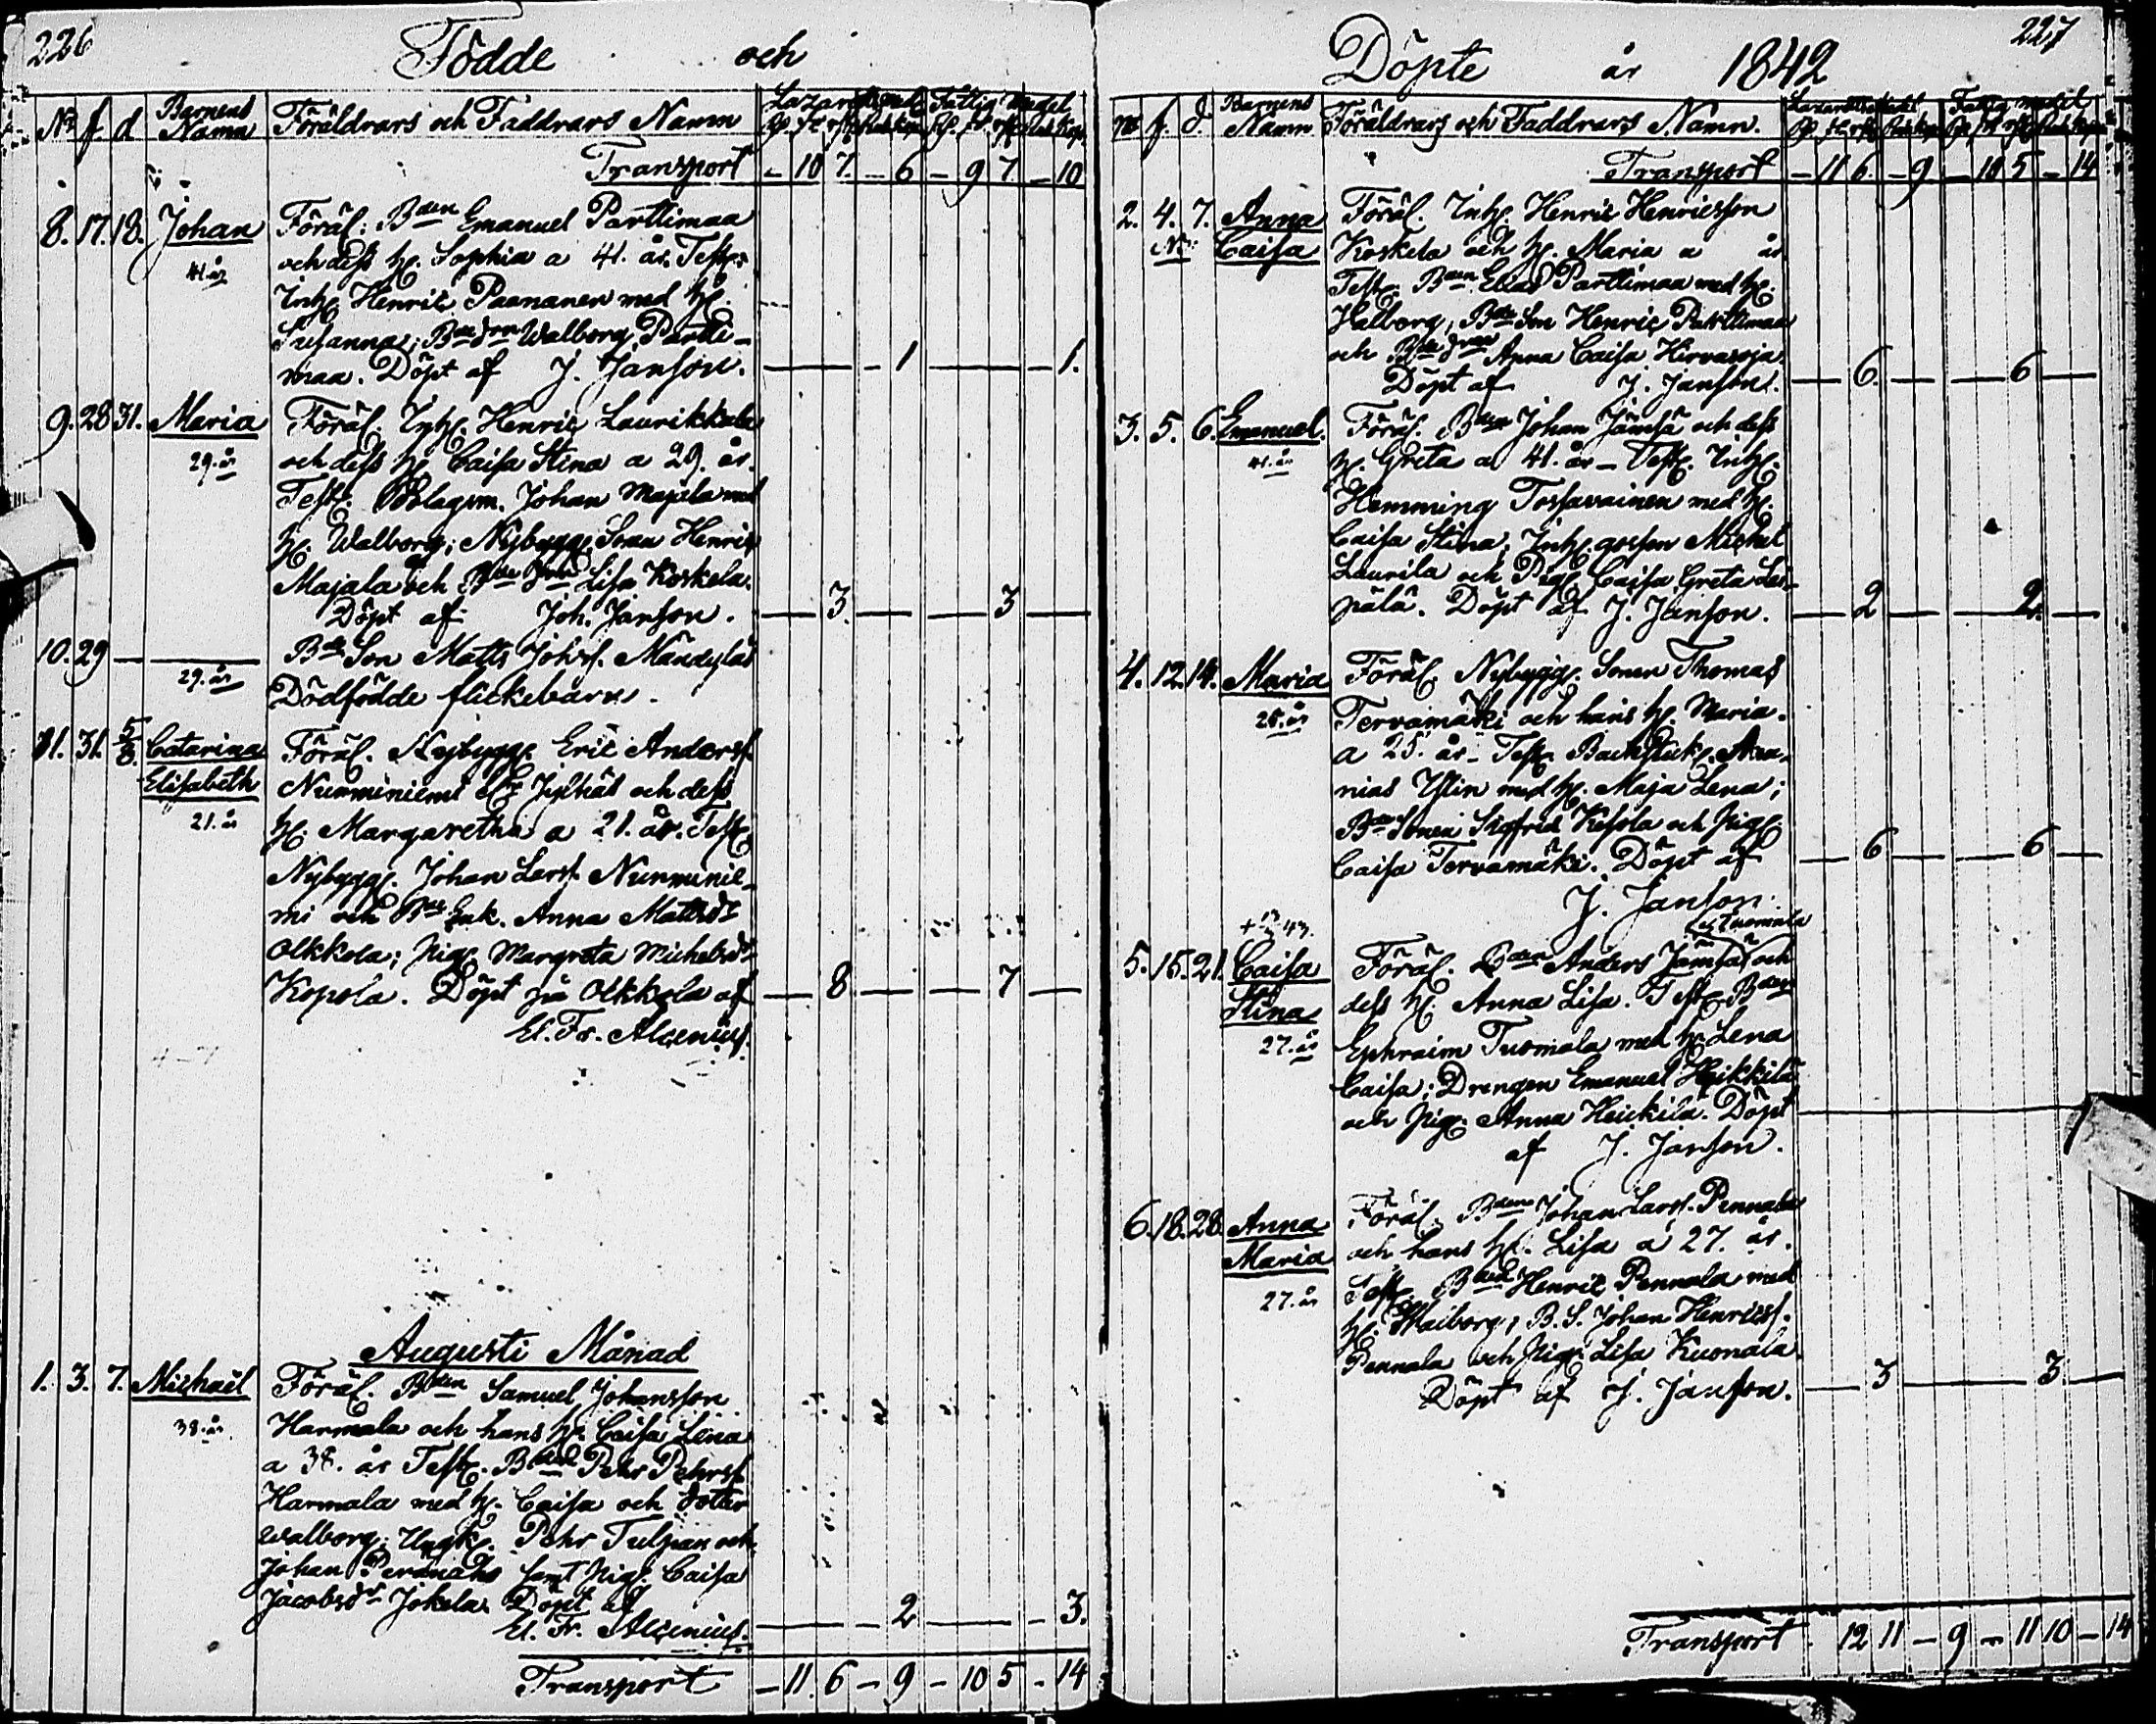 226
Födde och
No f d Barnens Namn Föräldrars och Faddrars Namn Lazaretts med. Fattig Medel
Transport - 10 7. - 6 - 9 7 - 10
8. 17. 18. Johan Föräl: Bden Emanuel Parttimaa
41. år och dess h. Sophia a 41. år. Test:
Inh. Henric Paananen med h.
Susanna; Bde dren Walborg Partti-
maa. Döpt af J. Janson. 1 1.
9. 28 31. Maria Föräl. Inh. Henric Laurikkala
29. år och dess h. Caisa Stina a 29. år.
Test: Bolagsm. Johan Majala med
h. Walborg; Nybygg. Sonen Henric
Majala och Lisa Koskela.
Döpt af Joh. Janson. 3. 3
10. 29 — — Bde Son Matts Johs. Mändylas
29. år Dödfödde flickebarn.
11. 31. 5/8. Catarina Föräl. Nybygg. Eric Anderss.
Elisabeth Nurminiemi Jylhäs och dess
21. år h. Margaretha a 21. år. Test.
Nybygg. Johan Larss. Nurminie-
mi och Enk. Anna Mattsdr
Olkkola; Pig. Margreta Michelsdr
Kopola. Döpt på Olkkola af 8 7
El. Fr. Alcenius.
Augusti Månad
1. 3. 7. Michaël Föräl. Bden Samuel Johansson
38. år Harmala och hans h. Caisa Lena
a 38. år Test. Bden Pehr Pehrss.
Harmala med h. Caisa och dotter
Walborg; Ungk. Pehr Tulpan och
Johan Peränäho samt Pig. Caisa
Jacobsdr Jokela. Döpt af 2 3.
El. Fr. Alcenius.
Transport - 11. 6 - 9 - 10 5 - 14
227
Döpte år 1842
No f. d. Barnens Namn Föräldrars och Faddrars Namn. Lazaretts medel Fattig medel
Transport - 11 6. - 9 - 10 5 - 14
2. 4. 7. Anna Föräl. Inh. Henric Henricsson
Caisa Koskela och h. Maria a år
Test. Bden Elias Parttimaa med h.
Walborg, Bde Son Henric Parttimaa
och Bde dren Anna Caisa Hirvasoja.
Döpt af J. Janson. 6. 6
3. 5. 6. Emanuel. Föräl. Bden Johan Jämsä och dess
41. år h. Greta a 41. år - Test. Inh.
Hemming Tossavainen med h.
Caisa Stina; Inh. gossen Michel
Laurila och Pig. Caisa Greta Lei-
pälä. Döpt af J. Janson. 2 2.
4. 12. 14. Maria Föräl. Nybygg. Sonen Thomas
25. år Tervamäki och hans h. Maria.
a 25. år - Test. Backstuk. Ana-
nias Yllin med h. Maja Lena;
Bde Sonen Sigfrid Kesola och Pig.
Caisa Tervamäki. Döpt af 6 6
J. Janson.
Tuomala
5. 15. 21. Caisa Föräl. Bden Anders Jämsä och
Stina dess h. Anna Lisa. Test. Bden
27. år Ephraim Tuomala med h. Lena
Caisa; Drengen Emanuel Heikkilä
och Pig. Anna Heickilä. Döpt
af J. Janson.
6. 18. 28. Anna Föräl. Bden Johan Larss. Pennala
Maria och hans h. Lisa a 27. år.
27. år Test. Bden Henric Pennala med
h. Walborg; B. S. Johan Henricss.
Pennala och Pig. Lisa Kuonala.
Döpt af J. Janson. 3 3
Transport - 12 11 - 9 - 11 10 - 14